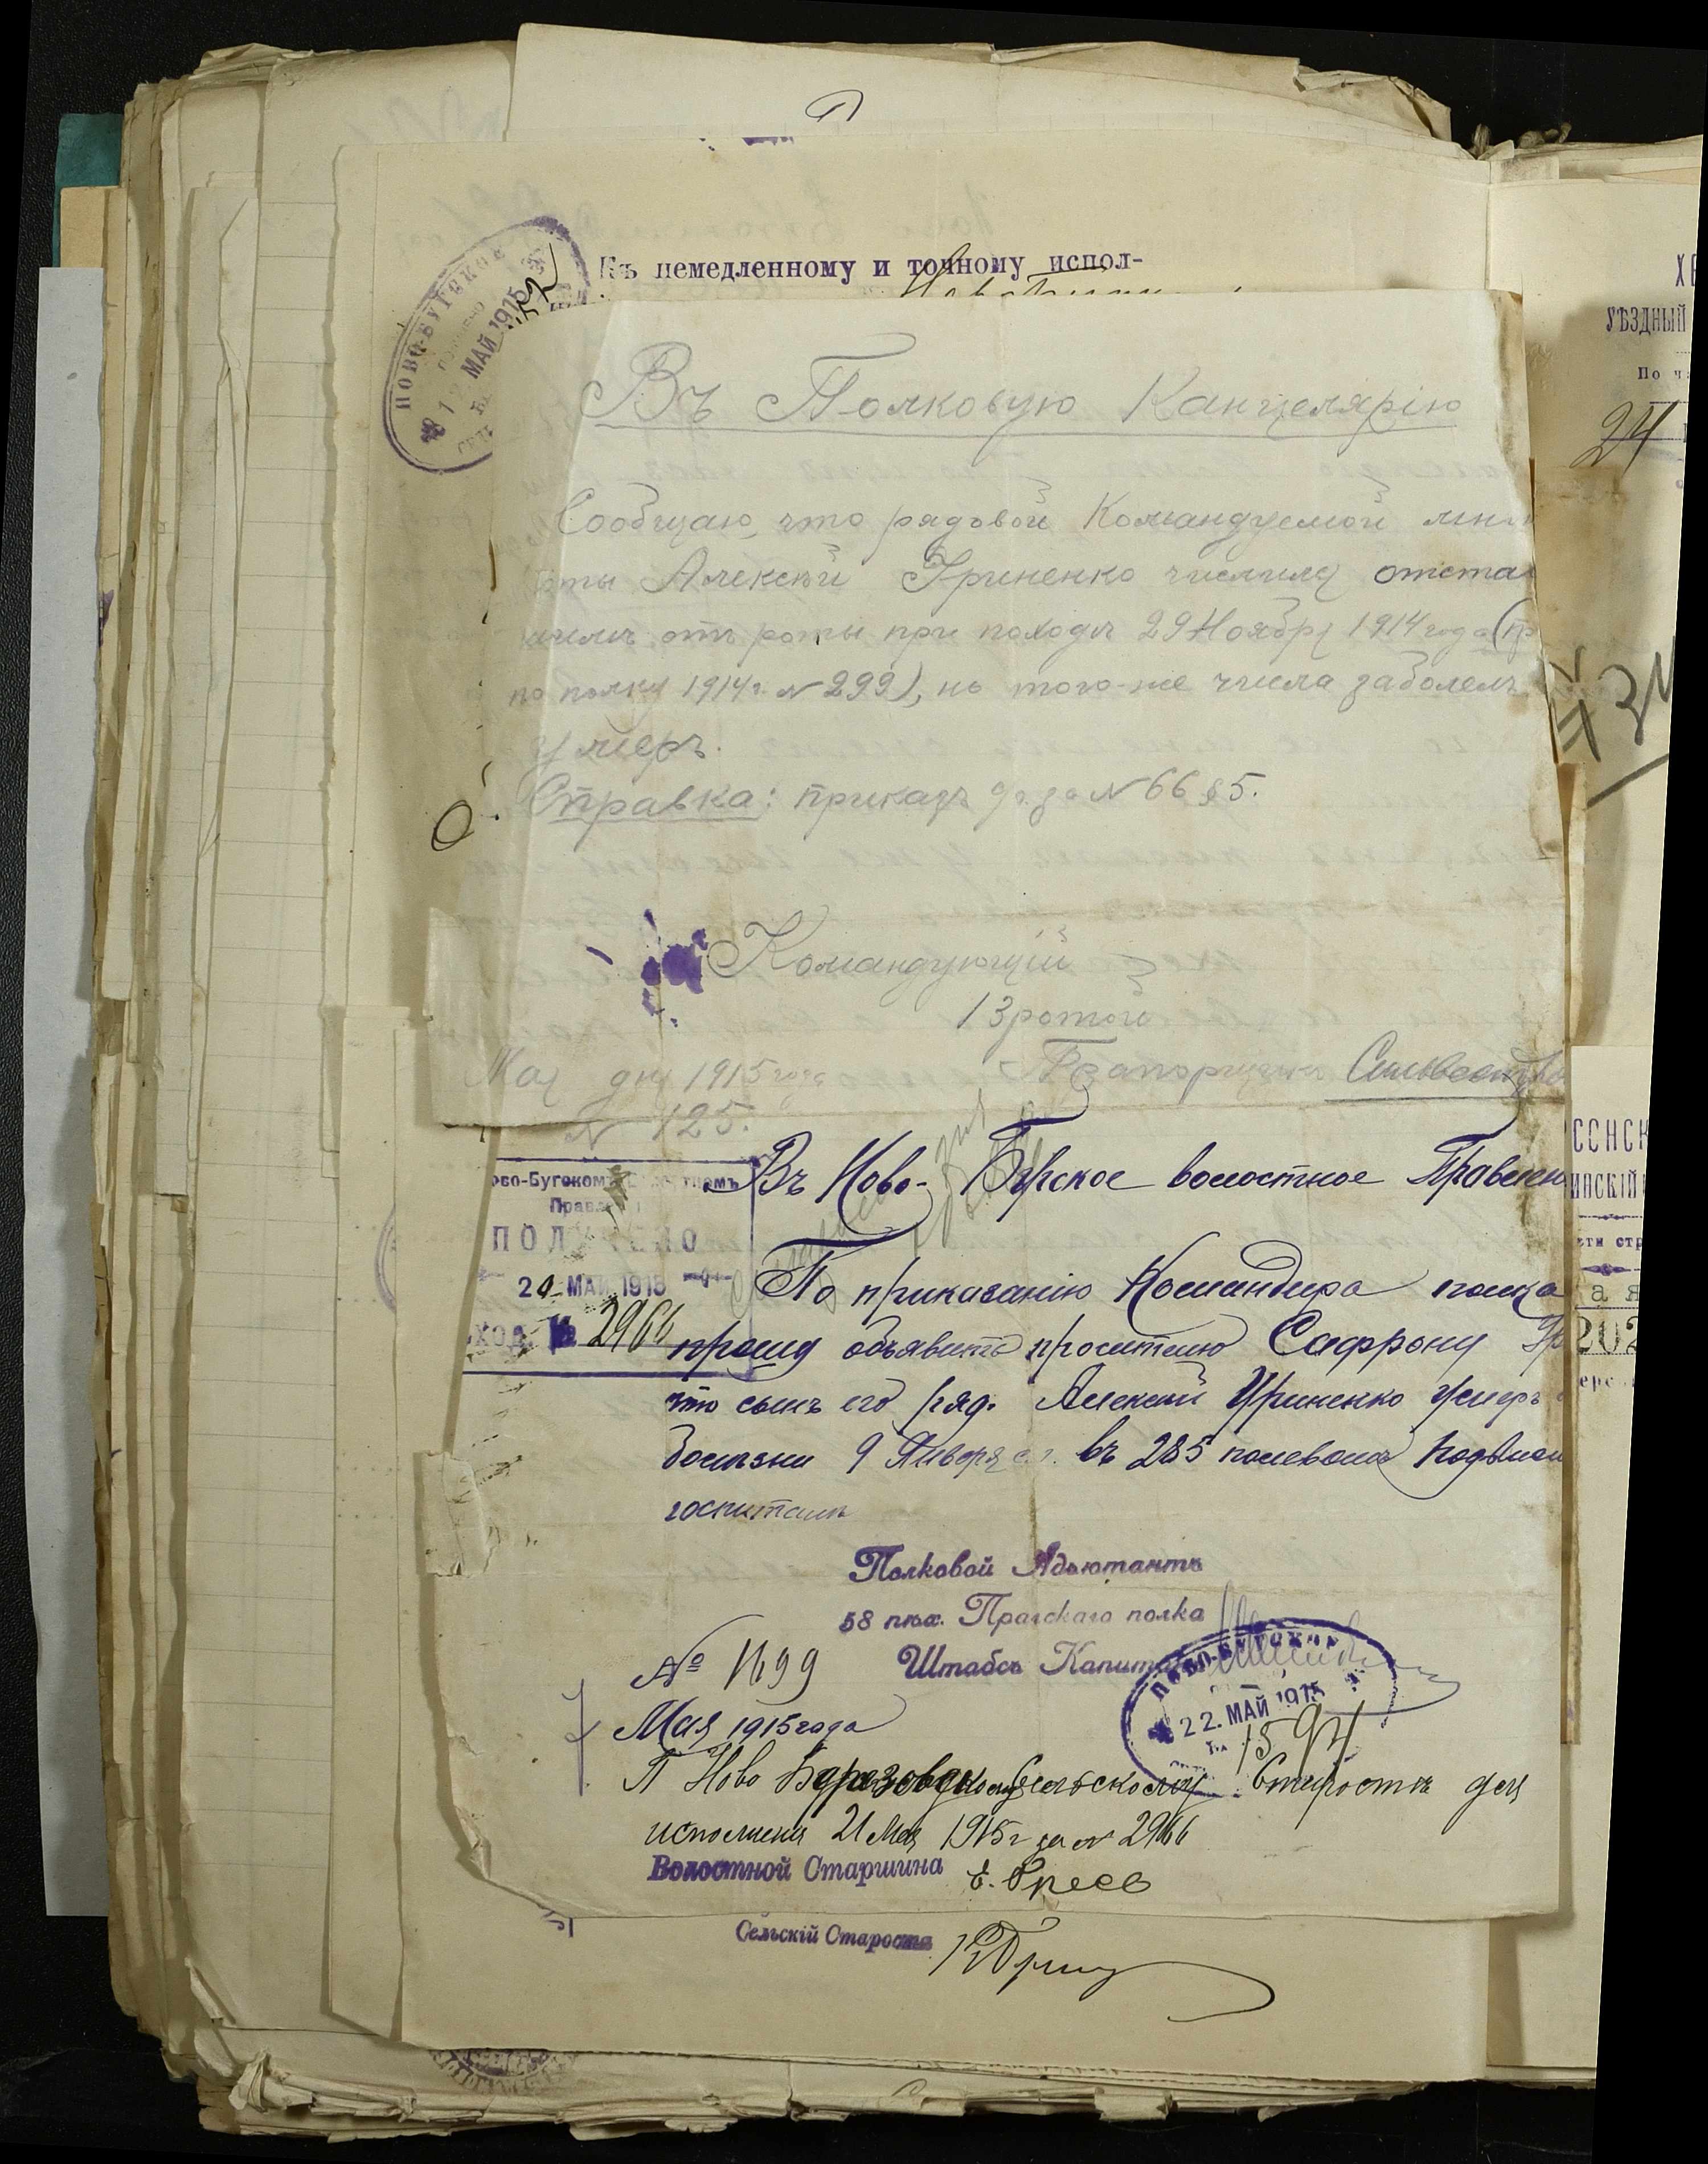 Къ немедленному и точному испол-
НОВО-БУГСКОЕ
МАЙ 1915
Въ Полковую Канцелярію
Сообщаю, что рядовой Командуемой мн
роты Алексѣй Гриненко числился отста
шимъ отъ роты при походѣ 29 Ноября 1914 года (пр
по полку 1914 г. № 299), но того-же числа заболелъ
умеръ.
Справка: приказъ за № 66 § 5.
Командующій
13 ротой
Мая дня 1915 года Прапорщикъ
№ 125.
ово-Бугском Волостномъ
Прав
ПОЛУЧЕНО
20 МАЙ 1915
ВХОД. № 2966
Въ Ново-Бугское волостное Правлен
По приказанію Командира полка
прошу объявить просителю Сафрону Гр
что сынъ его ряд. Алексѣй Гриненко умеръ
болѣзни 9 Января с. г. въ 285 полевомъ подвижн
госпиталѣ
Полковой Адъютантъ
58 пѣх. Прагскаго полка
Штабсъ Капитанъ
№ 1699
Мая 1915 года
НОВО-БУГСКОЕ
22. МАЙ 1915
1594
П Ново Сельскому Старостѣ для
исполненія 21 Мая 1915 г за № 2966
Волостной Старшина
Сельскій Староста
ХЕ
УѢЗДНЫЙ
По ч
24
ССНСК
ИНСКІЙ
сти стр
а я
202
ерс